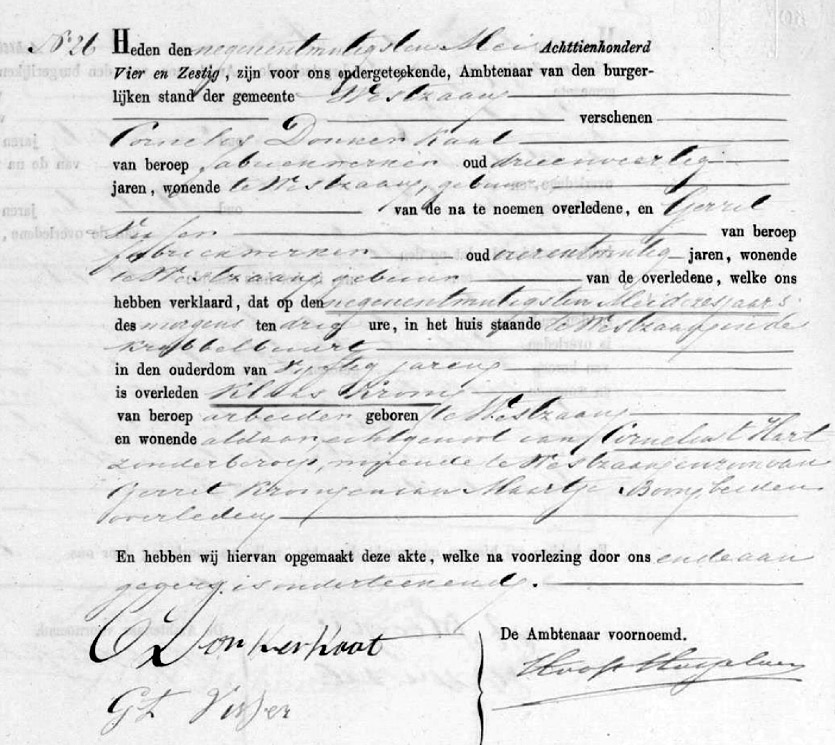 No. 26 Heden den negenentwintigsten Mei Achttienhonderd
Vier en Zestig, zijn voor ons ondergeteekende, Ambtenaar van den burger-
lijken stand der gemeente Westzaan
verschenen
Cornelis Donker Kaat
van beroep fabriekwerker oud drieenveertig
jaren, wonende te Westzaan, gebuur
van de na te noemen overledene, en Gerrit
Visser van beroep
fabriekwerker oud jaren, wonende
te Westzaan gebuur van de overledene, welke ons
hebben verklaard, dat op den negenentwintigsten Mei dezes jaars
des morgens ten drie ure, in het huis staande te Westzaan in de
Krabbelbuurt
in den ouderdom van Vijftig jaren
is overleden Klaas Krom
van beroep arbeider geboren te Westzaan
en wonende aldaar echtgenoot van Cornelia 't Hart
zonder beroep, wonende te Westzaan en zoon van
Gerret Krom en van Maartje Boon beiden
overleden
En hebben wij hiervan opgemaakt deze akte, welke na voorlezing door ons ende aan
gegeven is onderteekend.
C Donker Kaat
De Ambtenaar voornoemd.
Gt Visser